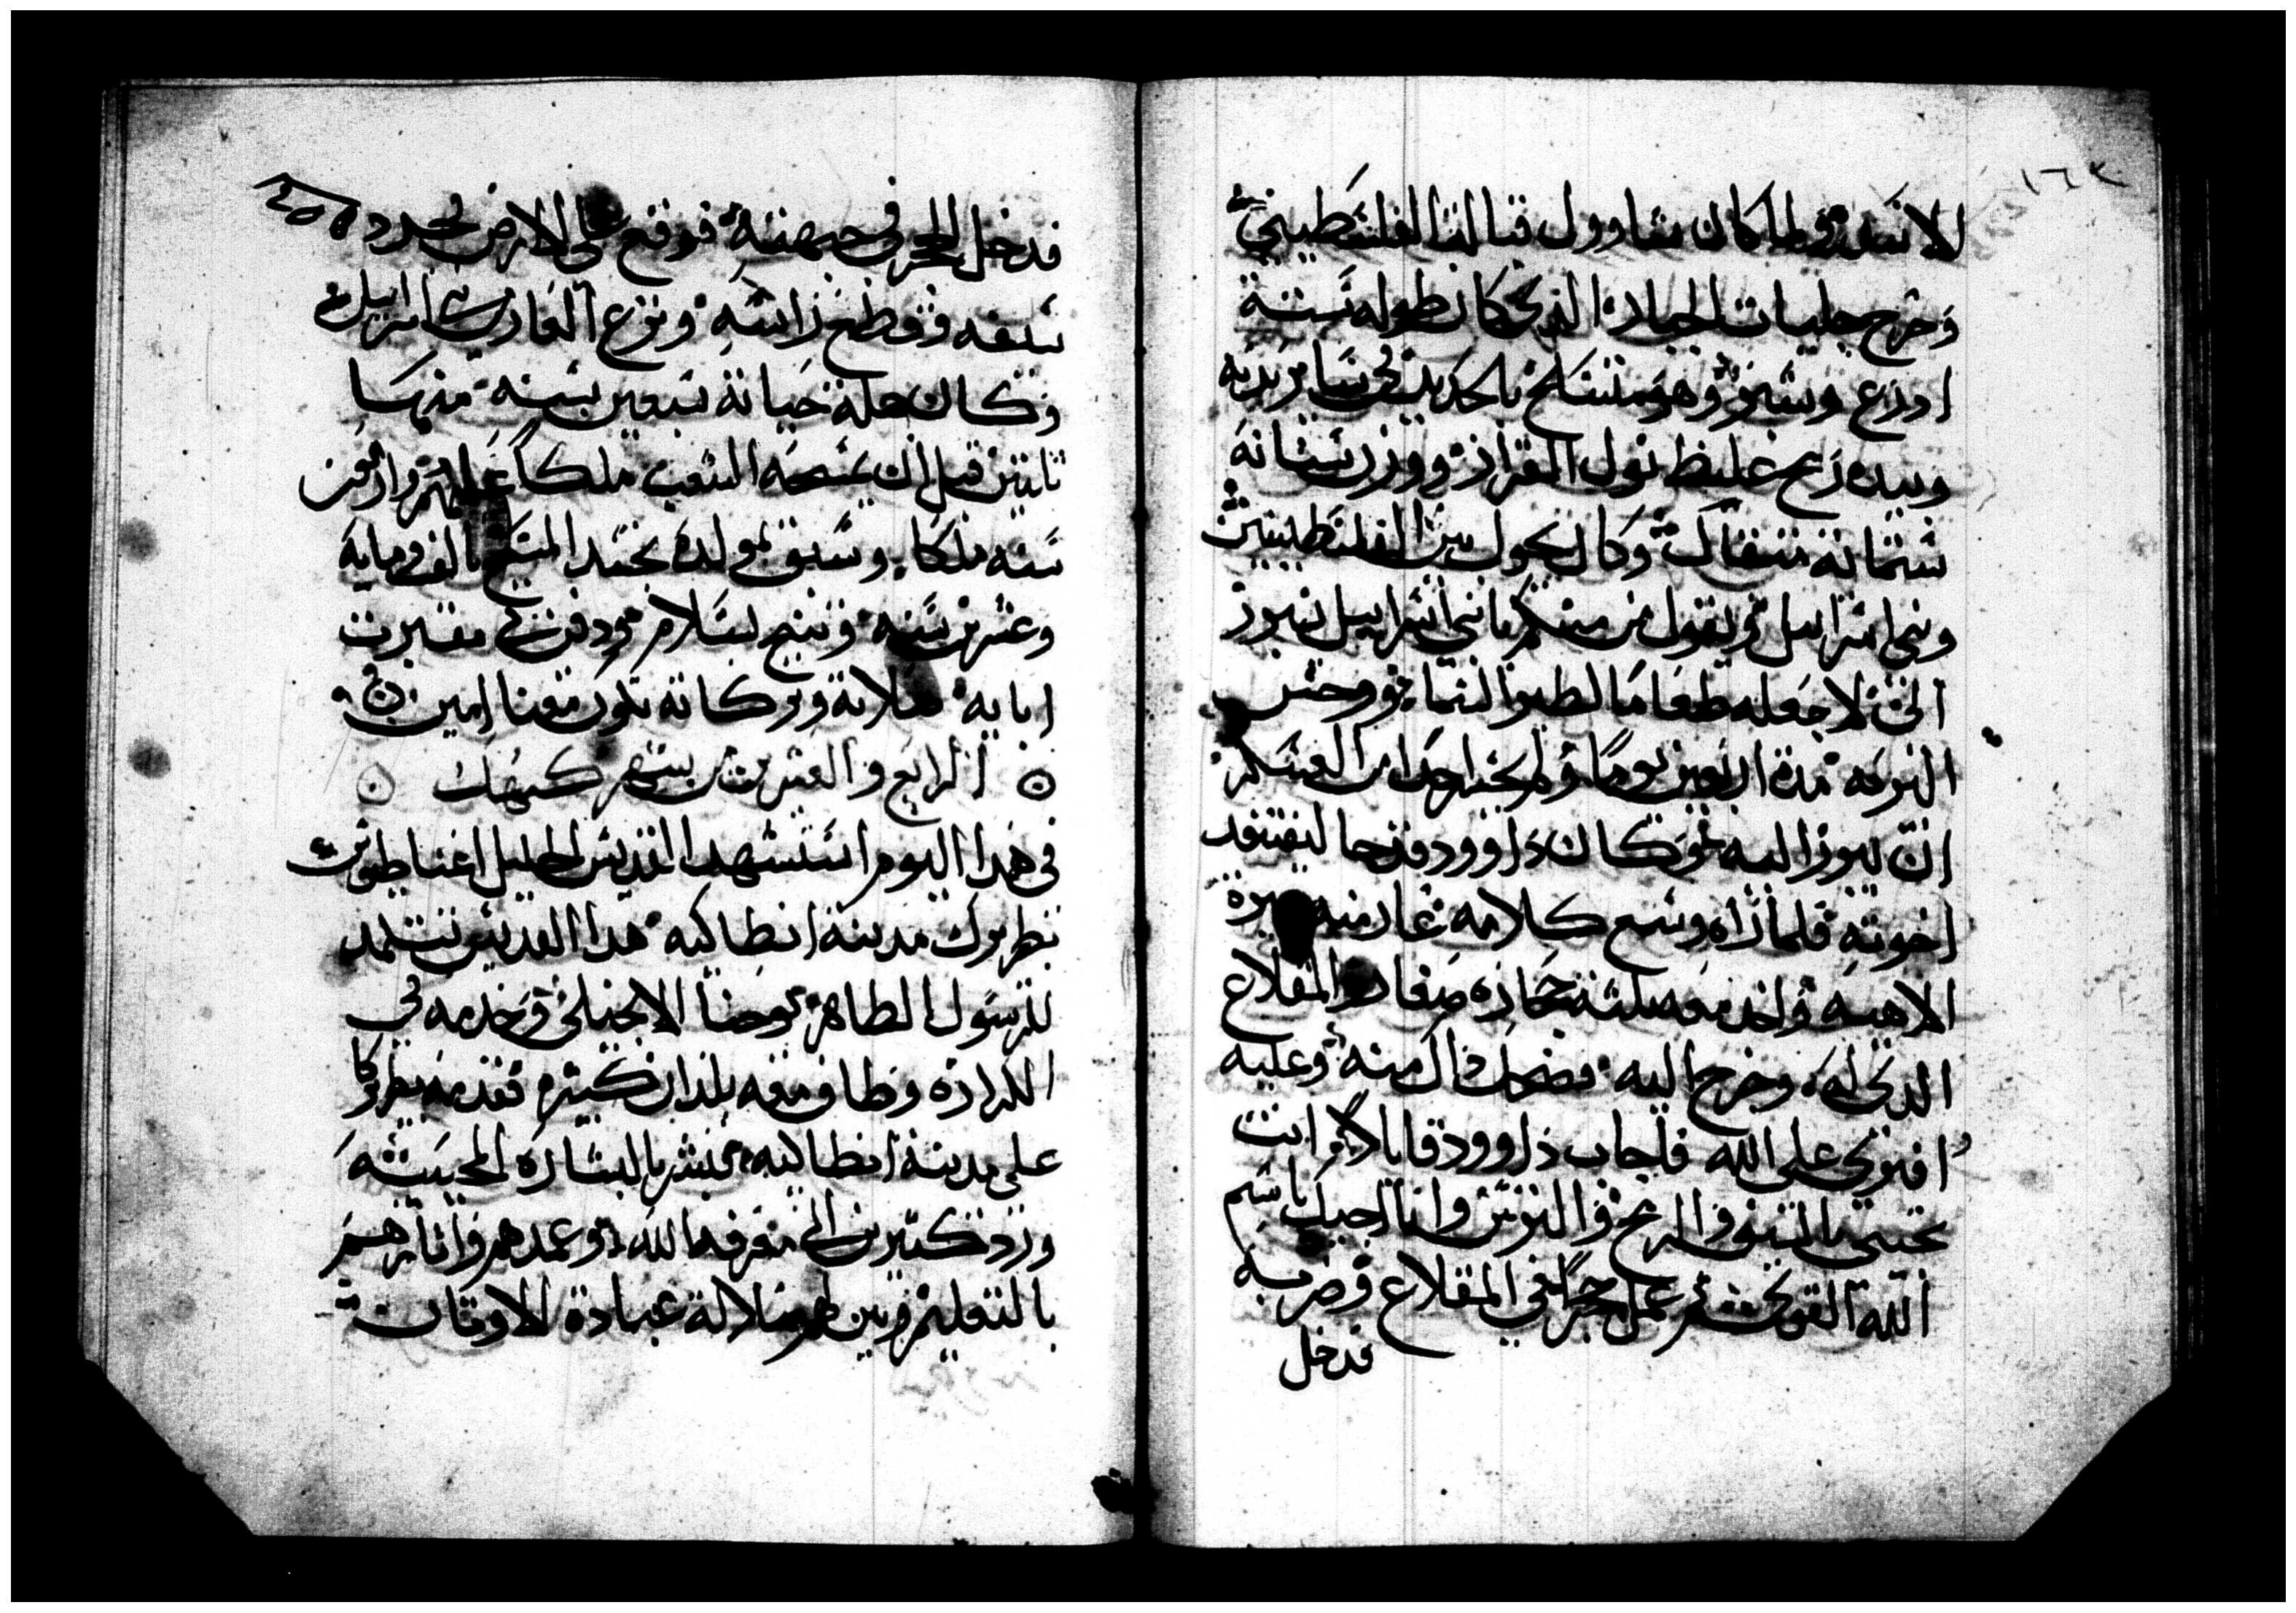 ١٦٣
للانقه ولما كان شاوول قتاله الفلسطيني
وخرج جليات الجبار الذي كان طوله ستة
ادرع وشبر وهو متسلح بالحديد في ساير بدنه
وبيده رمح غليظ نول القزاز ووزن سنانه
ستمائة مثقال وكان يحول بين الفلسطينيين
وبني اسراييل ويقول من منكم يا بني اسراييل يبرز
الي لاجعله طعاما لطير السماء ووحش
البريه مدة اربعين يوما ولم يجسر احدا من العسكر
ان يبرز اليه وكان داوود قد جا ليفتقد
اخوته فلما راه وسمع كلامه غار منه غيرة
الاهيه واخد معه تلثة حجاره صغار والمقلاع
الدي له وخرج اليه فضحك داك منه وعليه
افتري على الله فاجاب داوود قايلا انت
تجيني بالسيف والرمح والترس وانا اجيك باسم
الله القوي ثم عمل حجرا في المقلاع وضربه
فدخل
فدخل الحجر في جبهته فوقع على الارض فجرد
سيفه وقطع راسه ونزع العار من بني اسراييل
وكان جملة حياته سبعين سنه منها
تلتين قبل ان يمسحه الشعب ملكا عليهم واربعين
سنه ملكا وسبق بمولده تجسد المسيح بالف وماية
وعشرين سنه وتنيح بسلام ودفن في مقبرت
ابايه صلاته وبركاته تكون معنا امين
الرابع والعشرين من شهر كيهك
في هدا اليوم استشهد القديس الجليل اغناطيوس
بطريرك مدينة انطاكيه هدا القديس تتلمد
للرسول الطاهر يوحنا الانجيلي وخدمه في
الكرازه وطاف معه بلدان كثيره فقدمه بطريركا
على مدينة انطاكيه فبشر بالبشاره المحييه
ورد كتيرين الى معرفة الله وعمدهم وانارهم
بالتعليم وبين لهم ضلالة عبادة الاوتان